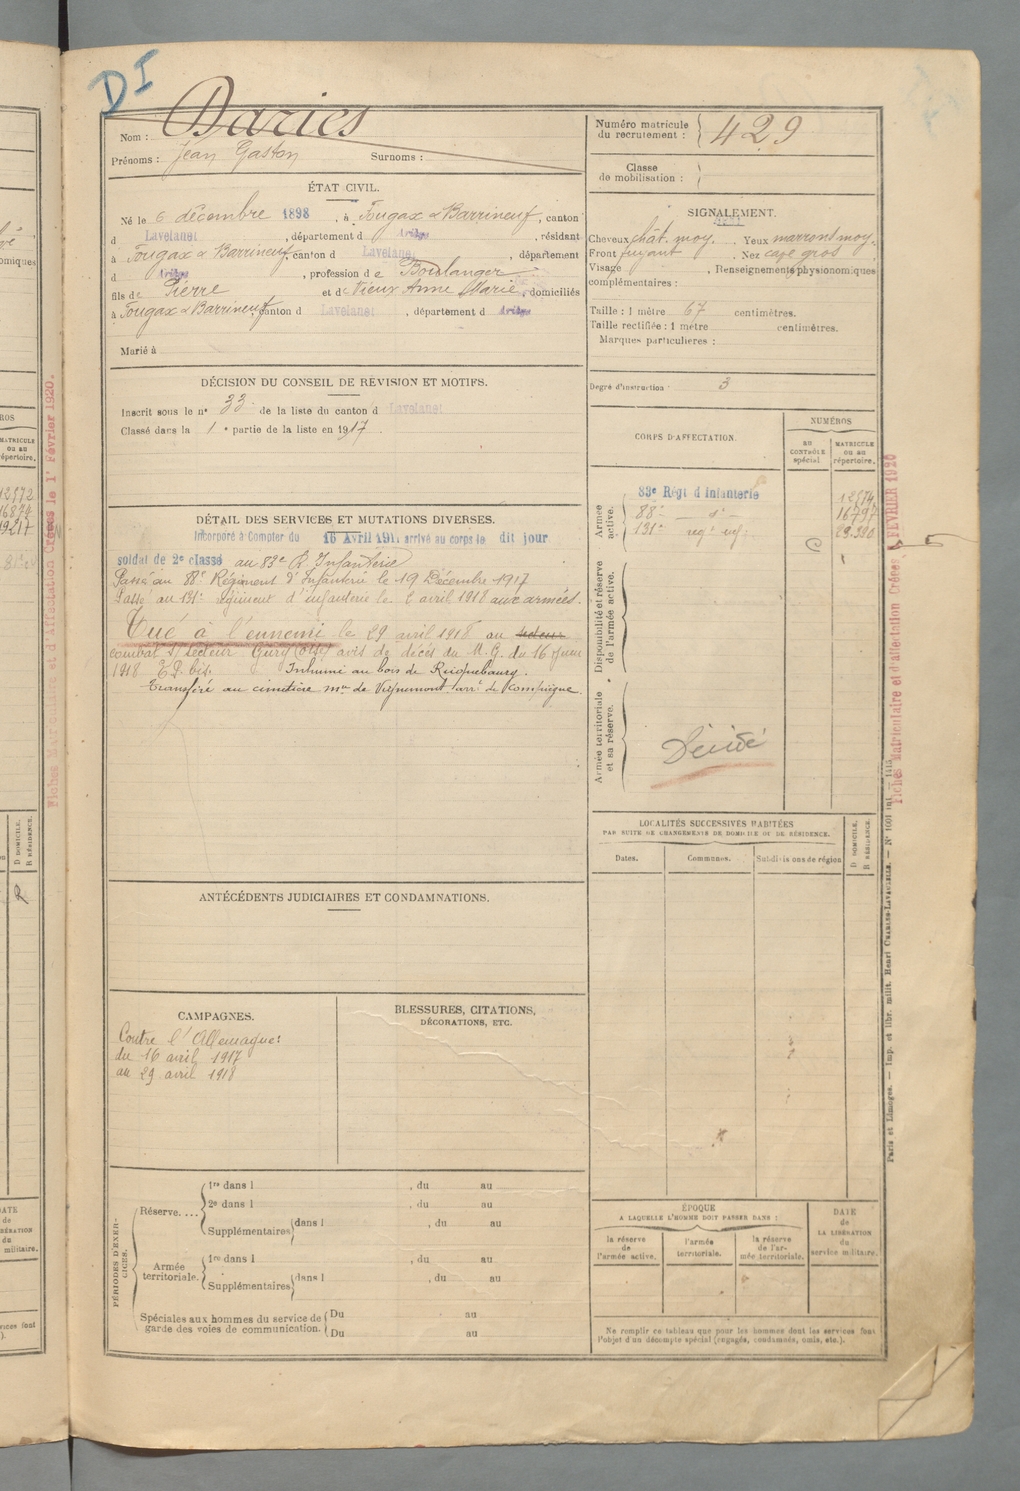 DI
Nom : Daries
Prénoms : Jean Gaston Surnoms :
Numéro matricule du recrutement : 429
Classe de mobilisation :
ÉTAT CIVIL.
Né le 6 décembre 1898, à Fougax & Barrineuf, canton
d Lavelanet, département d Ariège, résidant
à Fougax & Barrineuf, canton d Lavelanet, département
d Ariège, profession de Boulanger
fils de Pierre et de Vieux Anne Marie, domiciliés
à Fougax & Barrineuf canton d Lavelanet, département d Ariège
Marié à
SIGNALEMENT.
Cheveux chât. moy. Yeux marrons moy.
Front fuyant Nez cave gros
Visage , Renseignements physionomiques
complémentaires :
Taille : 1 mètre 67 centimètres.
Taille rectifiée : 1 mètre centimètres.
Marques particulières :
Degré d'instruction 3
DÉCISION DU CONSEIL DE RÉVISION ET MOTIFS.
Inscrit sous le n° 33 de la liste du canton d Lavelanet
Classé dans la 1e partie de la liste en 1917.
CORPS D'AFFECTATION.
NUMÉROS
au contrôle spécial
matricule ou au répertoire.
Armée active.
83e Régt d'Infanterie 12574
88e d° 16797
131e reg. inf. 29.390
Disponibilité et réserve de l'armée active.
Armée territoriale et sa réserve.
Décédé
DÉTAIL DES SERVICES ET MUTATIONS DIVERSES.
Incorporé à Compter du 16 Avril 191 arrivé au corps le dit jour
soldat de 2e classe au 83e R. Infanterie
Passé au 88e Régiment d'Infanterie le 19 Décembre 1917
Passé au 131e régiment d'infanterie le avril 1918 aux armées.
Tué à l'ennemi le 29 avril 1918 au secteur
combat secteur Gury (Oise) avis de décès du M. G. du 16 juin
1918 E.D. bis. Inhumé au bois de Ricquebourg.
Transféré au cimetière mre de Vignemont arrt de Compiègne.
LOCALITÉS SUCCESSIVES HABITÉES
PAR SUITE DE CHANGEMENTS DE DOMICILE OU DE RÉSIDENCE.
Dates. Communes. Subdivisions de région
D DOMICILE.
R RÉSIDENCE.
ANTÉCÉDENTS JUDICIAIRES ET CONDAMNATIONS.
CAMPAGNES.
Contre l'Allemagne:
du 16 avril 1917
au 29 avril 1918
BLESSURES, CITATIONS,
DÉCORATIONS, ETC.
PÉRIODES D'EXERCICES.
Réserve....
1re dans l , du au
2e dans l , du au
Supplémentaires dans l , du au
Armée territoriale.
1re dans l , du au
Supplémentaires dans l , du au
Spéciales aux hommes du service de garde des voies de communication.
Du au
Du au
ÉPOQUE
A LAQUELLE L'HOMME DOIT PASSER DANS :
la réserve de l'armée active.
l'armée territoriale.
la réserve de l'armée territoriale.
DATE de LA LIBÉRATION du service militaire.
Ne remplir ce tableau que pour les hommes dont les services font
l'objet d'un décompte spécial (engagés, condamnés, omis, etc.).
Paris et Limoges. — Imp. et libr. milit. Henri CHARLES-LAVAUZELLE.
Fiches Matriculaire et d'affectation Créées, FÉVRIER 1920
Fiches Matriculaire et d'Affectation Créées le 1r Février 1920.